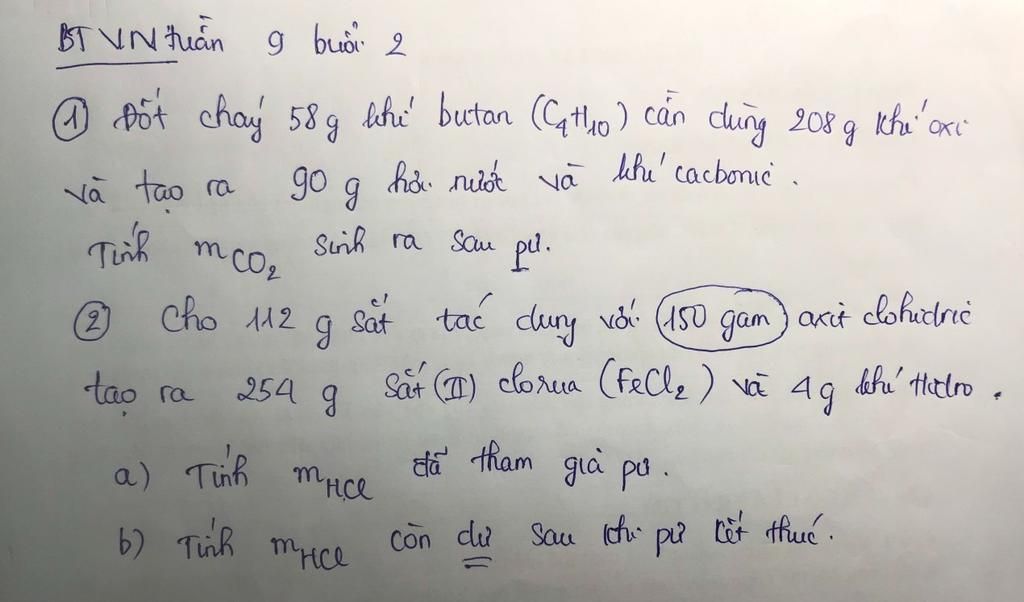 BTVN tuần 9 buổi 2
① Đốt cháy 58g khí butan (C₄H₁₀) cần dùng 208g khí oxi
và tạo ra 90 g hơi nước và khí cacbonic.
Tính mCO₂ sinh ra sau pư.
② Cho 112 g sắt tác dụng với 150 gam axit clohidric
tạo ra 254 g sắt (II) clorua (FeCl₂) và 4g khí Hidro.
a) Tính mHCl đã tham gia pư.
b) Tính mHCl còn dư sau khi pư kết thúc.